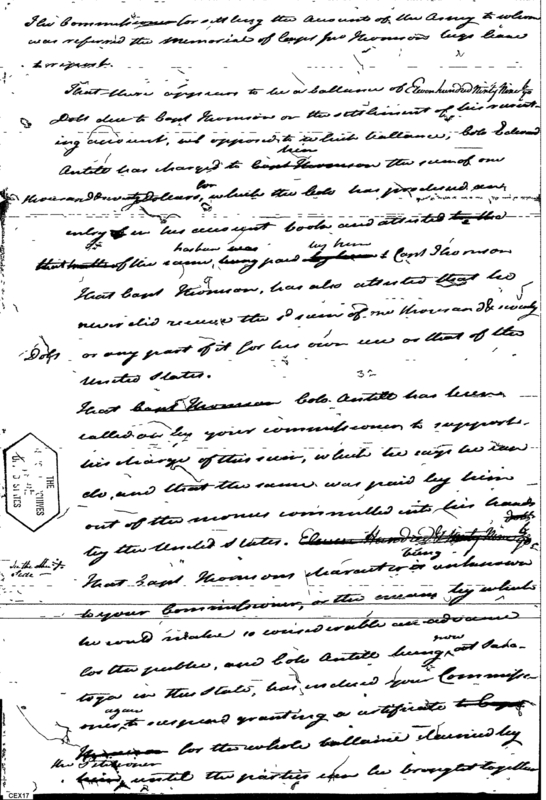 The Commissioner for settling the Accounts of the Army to whom
was referred the Memorial of Capt Jno Thomson begs leave
to report.
That there appears to be a ballance of Eleven hundred Ninty Nine
Dolls due to Capt Thomson on the settlement of his recruit-
ing account, opposed to which ballance, Colo Edward
him
Antill has charged to Capt Thomson the sum of one
for
thousand & ninety Dollars, which the Colo has produced an
entry in his account book and attested to the
has been was by him
of the same, being paid by him to Capt Thomson
That Capt Thomson, has also attested that he
never did receive the sd sum of one thousand & ninety
Dolls or any part of it for his own use or that of the
United States.
32
That Capt Thomson Colo Antill has been
called on by your commissioner to support
his charge of this sum, which he says he can
do, and that the same was paid by him
out of the monies committed into his hands
by the United States. Eleven Hundred & Ninty Nine
Dolls
being
That Capt Thomsons character is unknown
to your Commissioner, or the means by which
he could make so considerable an advance
now
for the public, and Colo Antill being, at Sara-
toga in this State, has induced your Commiss-
again
oner, to suspend granting a certificate to Capt
Thomson for the whole ballance claimed by
the Petitioner
him until the parties can be brought together
THE
ARCHIVES
CEX17